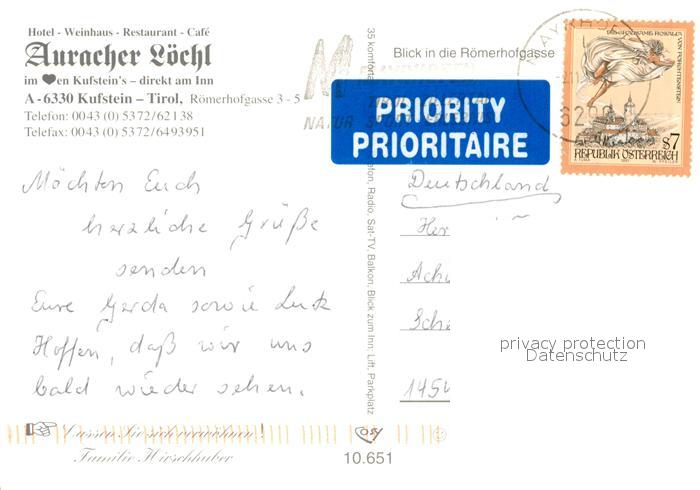 Hotel - Weinhaus - Restaurant - Café
Auracher Löchl
im ♥en Kufstein's – direkt am Inn
A - 6330 Kufstein – Tirol, Römerhofgasse 3 - 5
Telefon: 0043 (0) 5372/62138
Telefax: 0043 (0) 5372/6493951
Möchten Euch
herzliche Grüße
senden
Eure Gerda sowie
Hoffen, daß wir uns
bald wieder sehen.
Lassen Sie sich verwöhnen !
Familie Hirschhuber
35 komforta
efon, Radio, Sat-TV, Balkon, Blick zum Inn; Lift, Parkplatz
Blick in die Römerhofgasse
PRIORITY
PRIORITAIRE
NATUR
VON FORCHTENSTEIN
S7
REPUBLIK ÖSTERREICH
Deutschland
Her
Ach
Sch
145
privacy protection
Datenschutz
10.651